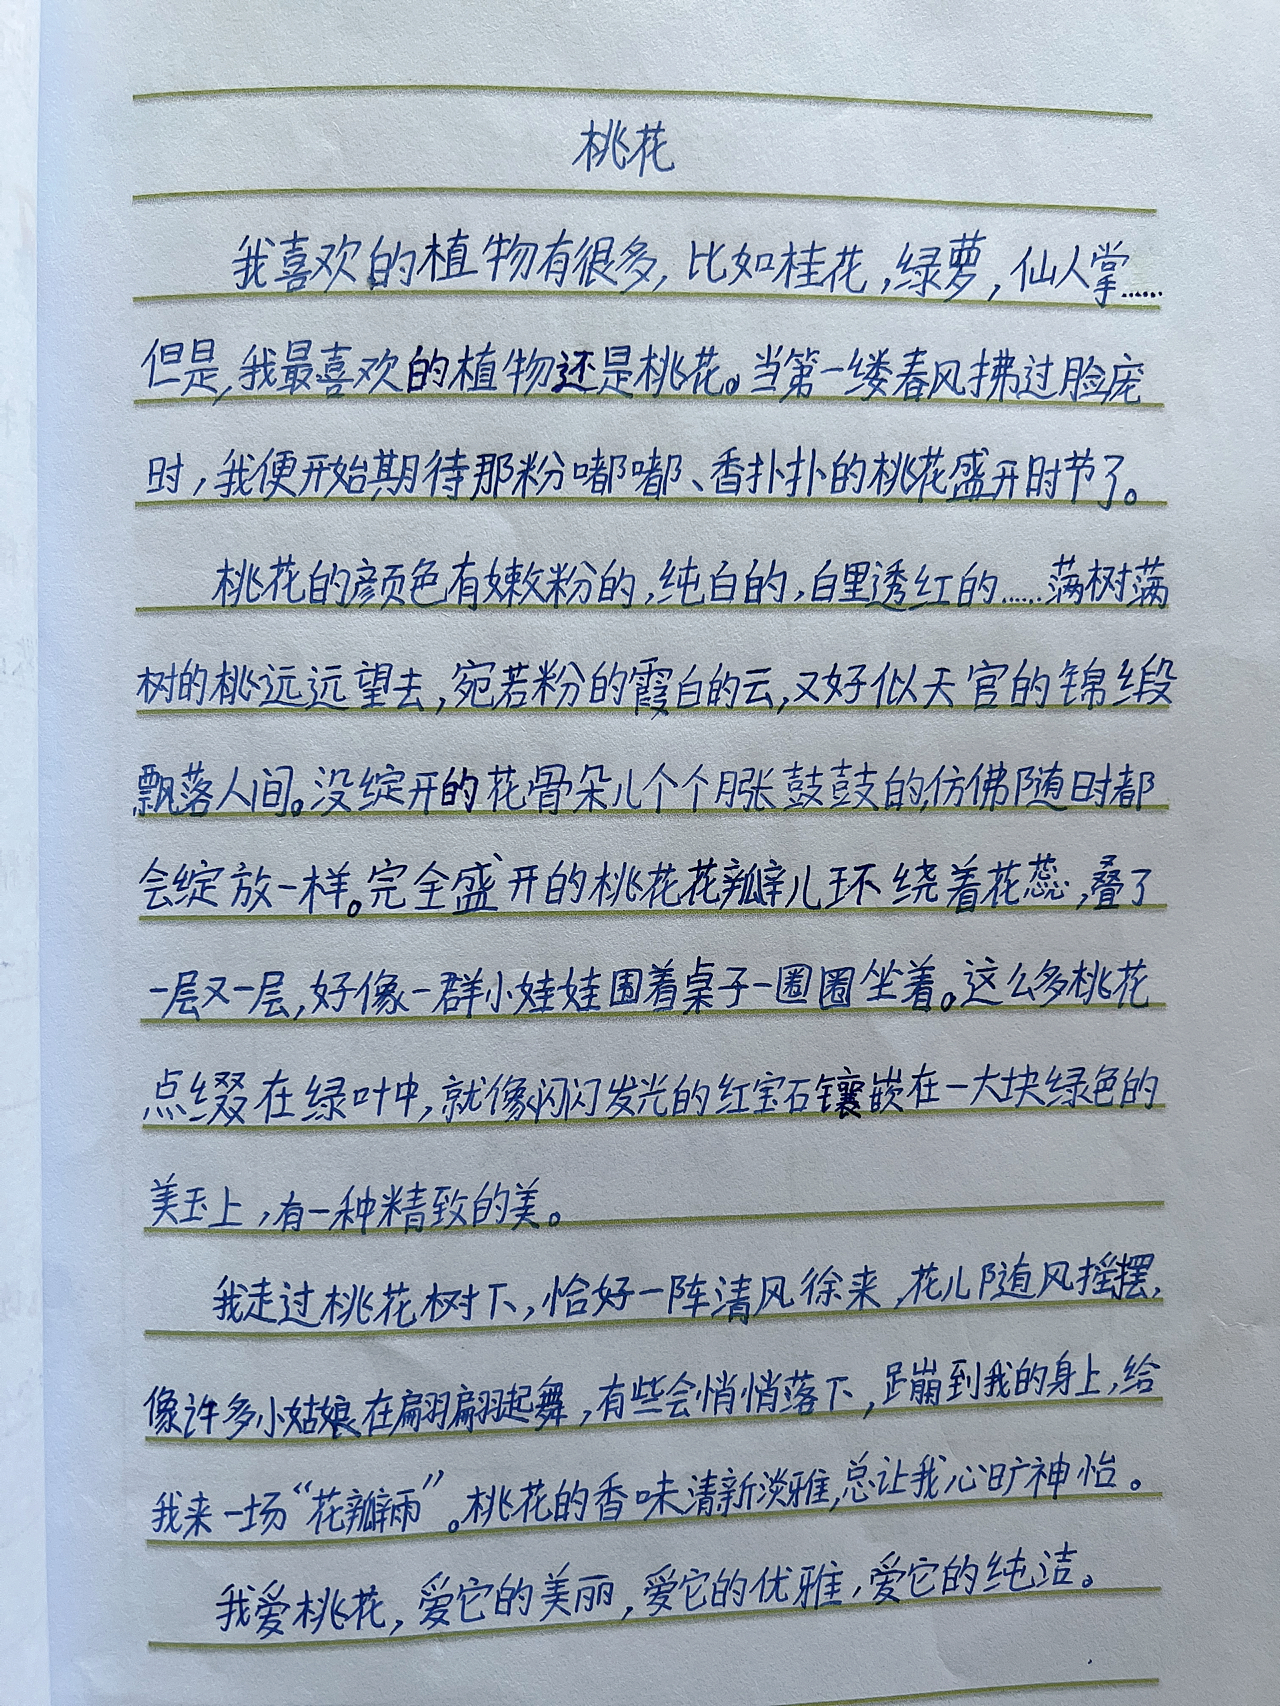 桃花
我喜欢的植物有很多,比如桂花,绿萝,仙人掌……
但是,我最喜欢的植物还是桃花。当第一缕春风拂过脸庞
时,我便开始期待那粉嘟嘟、香扑扑的桃花盛开时节了。
桃花的颜色有嫩粉的,纯白的,白里透红的……满树满
树的桃远远望去,宛若粉的霞白的云,又好似天官的锦缎
飘落人间。没绽开的花骨朵儿个个胀鼓鼓的,仿佛随时都
会绽放一样。完全盛开的桃花花瓣儿环绕着花蕊,叠了
一层又一层,好像一群小娃娃围着桌子一圈圈坐着。这么多桃花
点缀在绿叶中,就像闪闪发光的红宝石镶嵌在一大块绿色的
美玉上,有一种精致的美。
我走过桃花树下,恰好一阵清风徐来,花儿随风摇摆,
像许多小姑娘在翩翩起舞,有些会悄悄落下,蹦到我的身上,给
我来一场“花瓣雨”。桃花的香味清新淡雅,总让我心旷神怡。
我爱桃花,爱它的美丽,爱它的优雅,爱它的纯洁。